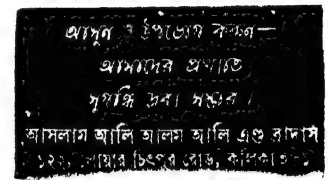 আসুন ও উপভোগ করুন—
আমাদের প্রখ্যাত
সুগন্ধি দ্রব্য সম্ভার।
আসলাম আলি আলম আলি এণ্ড ব্রাদার্স
১২২, লোয়ার চিৎপুর রোড, কলিকাতা-১